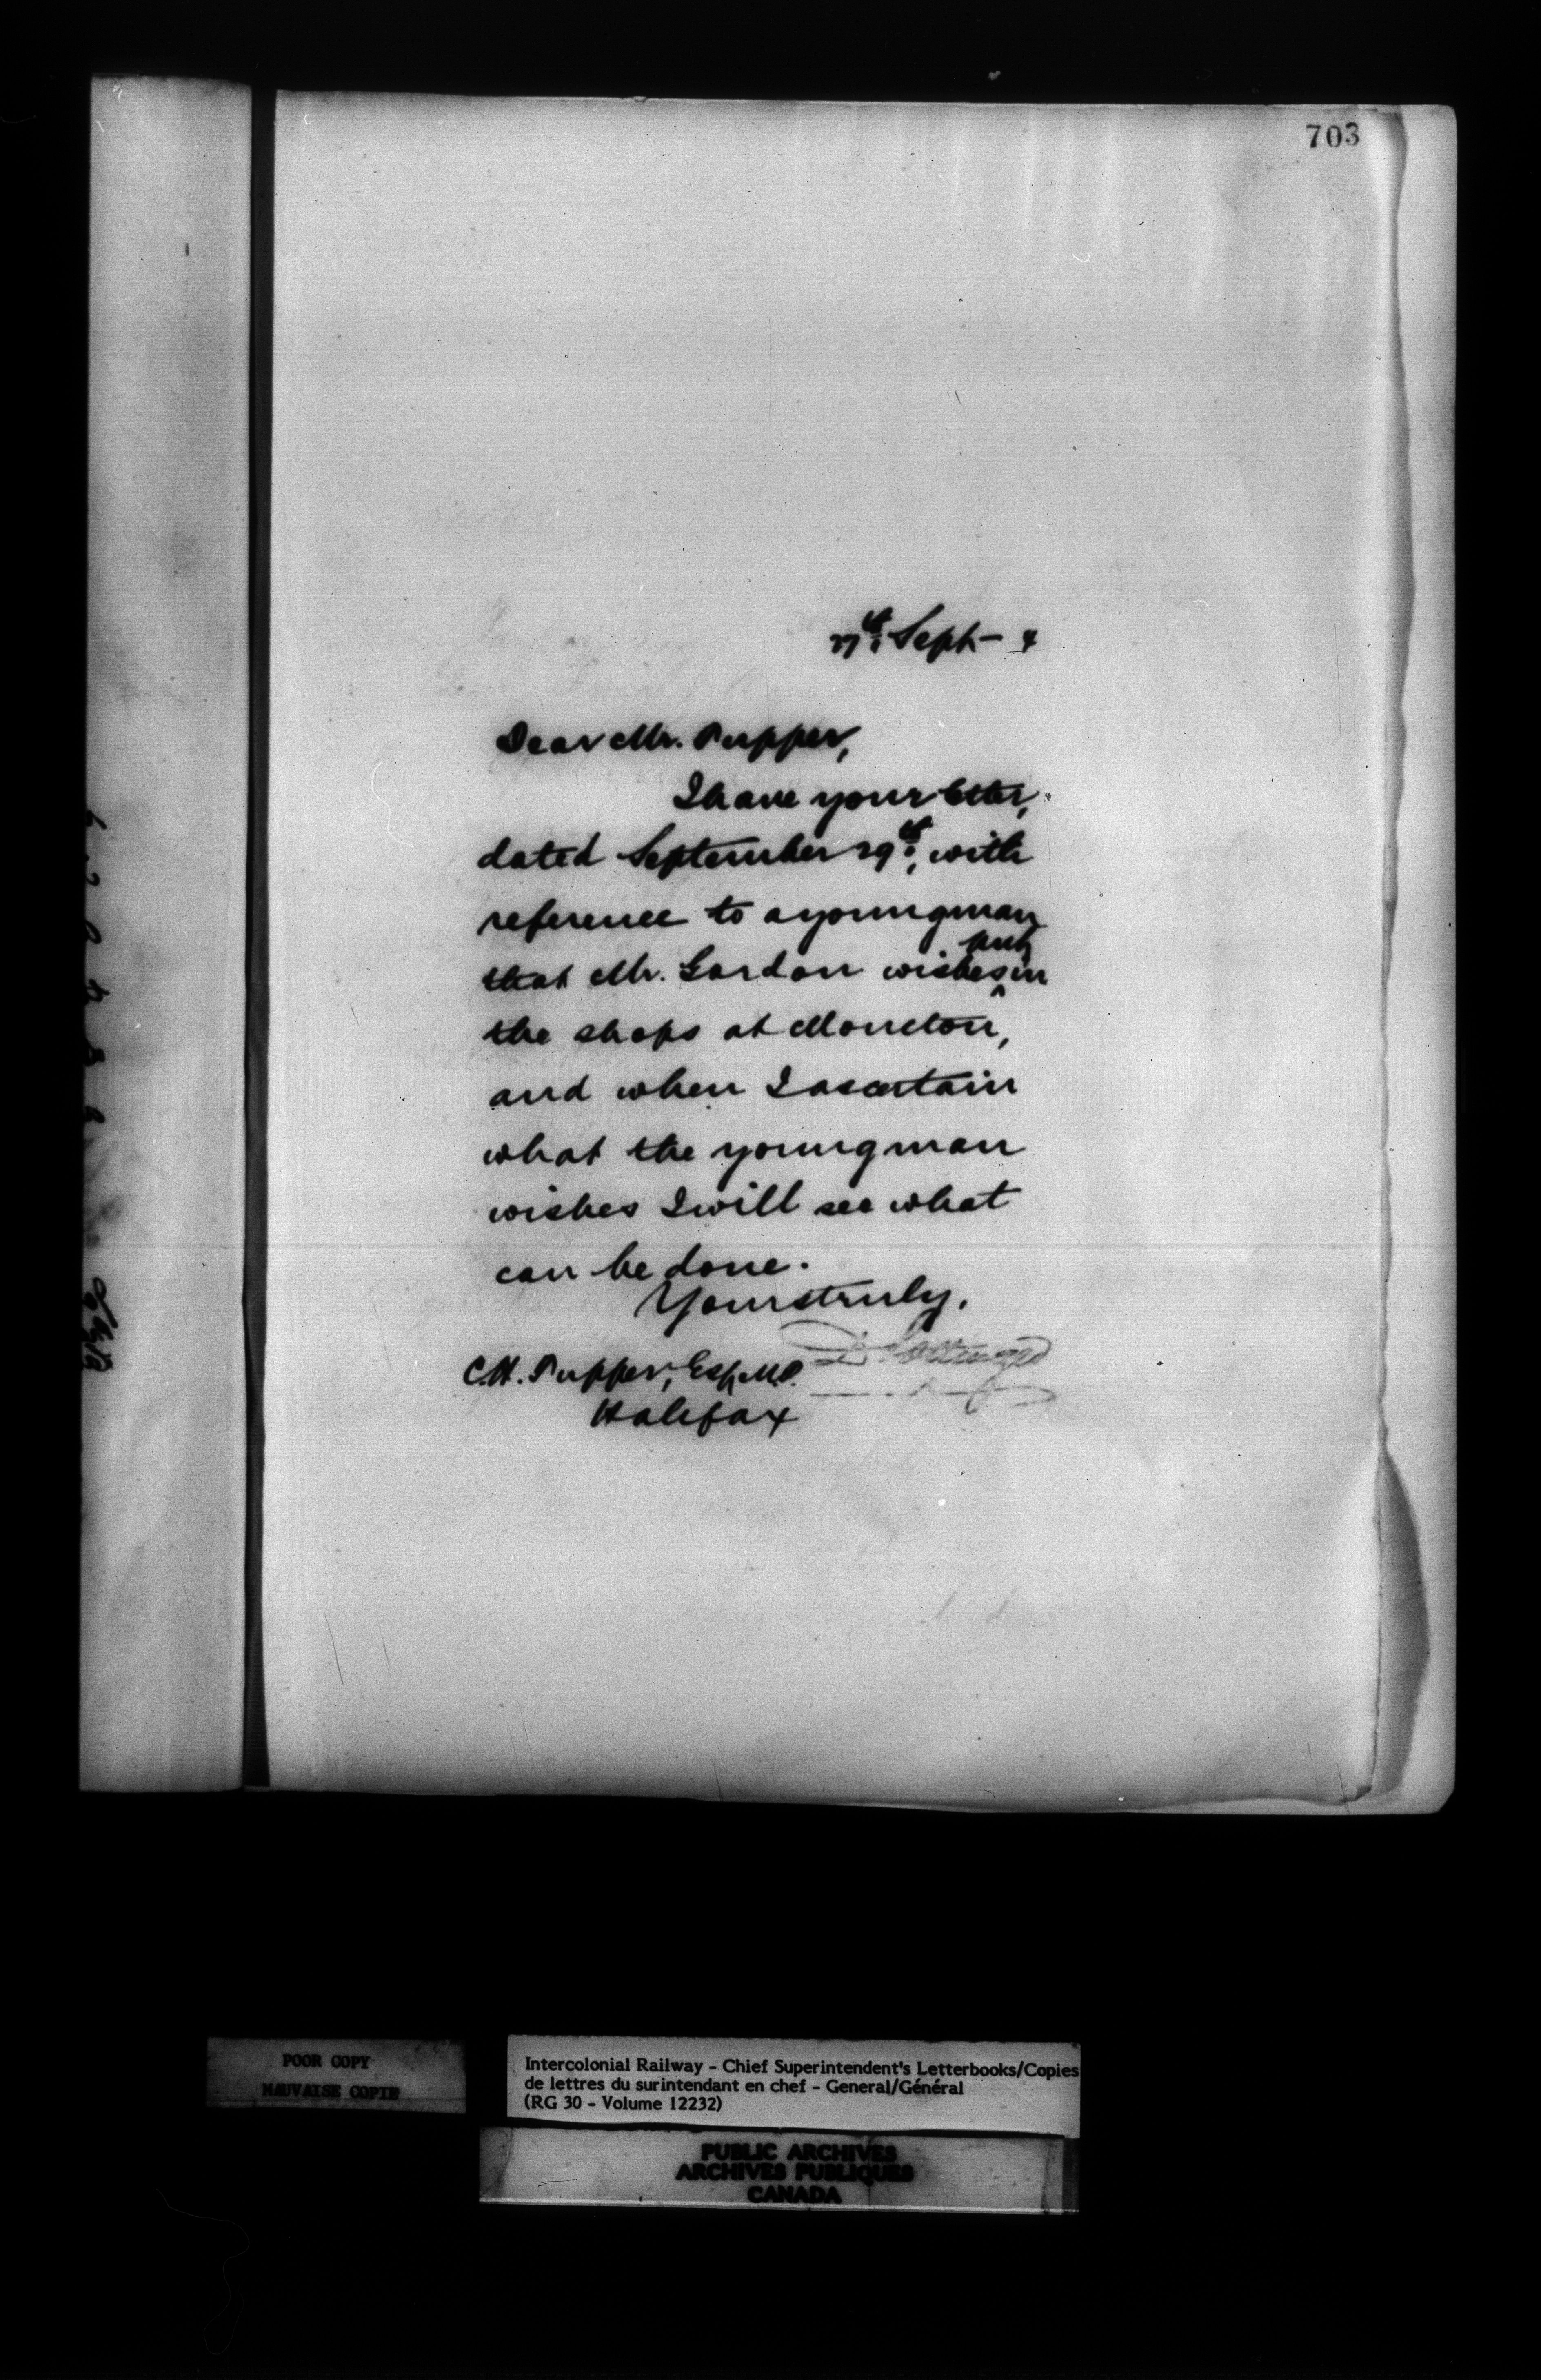 703
27th Sept - 4
Dear Mr. Tupper,
I have your letter,
dated September 29th, with
reference to a young man
that Mr. Gordon wishes put in
the shops at Moncton,
and when I ascertain
what the young man
wishes I will see what
can be done.
Yours truly,
D Pottinger
C.H. Tupper, Esq. M.P.
Halifax
POOR COPY
MAUVAISE COPIE
Intercolonial Railway - Chief Superintendent's Letterbooks/Copies
de lettres du surintendant en chef - General/Général
(RG 30 - Volume 12232)
PUBLIC ARCHIVES
ARCHIVES PUBLIQUES
CANADA